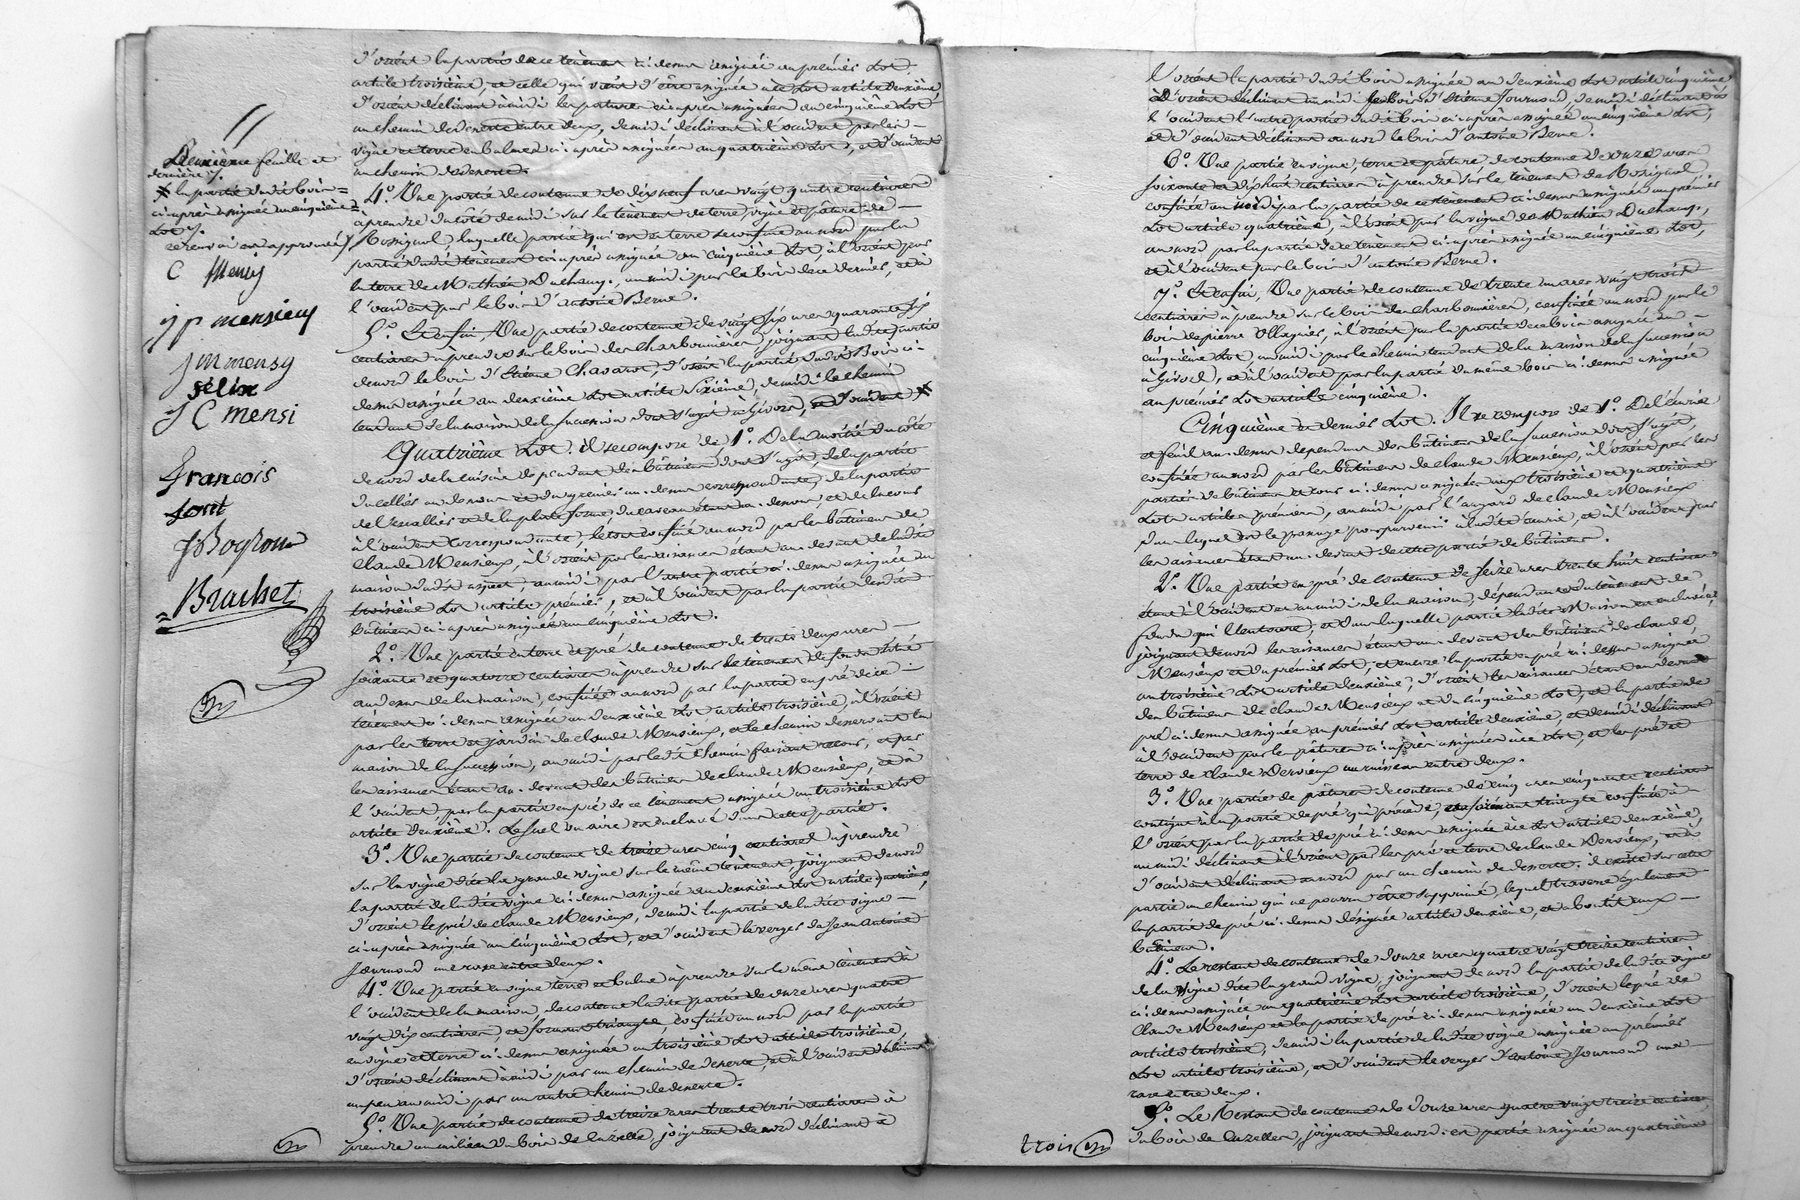 Deuxième feuille et
dernière ./.
× la partie dudit bois
ci après assignée au cinquième
Lot ./.
ce renvoi est approuvé /.
C Mensy
J P mensieux
J M mensy
félix
J C mensi
François
font
J Boyron
Brachet
d'orient la partie de ce tènement ci-dessus assignée au prémier Lot
article troisième, et celle qui vient d'être assignée à ce Lot article deuxième
d'orient déclinant à midi les patures ci après assignées au cinquième Lot
un chemin de desserte entre deux, de midi déclinant à l'occident par les
vigne et terre en balmes ci après assignées au quatrième Lot, et d'occident
un chemin de desserte.
4.° Une partie de contenue de dix neuf ares vingt quatre centiares
à prendre du côté de midi sur le tènement de terre, vigne et pâture de
Rossignol, laquelle partie qui est en terre se confine au nord par la
partie dudit tènement ci après assignée au cinquième Lot, à l'orient par
la terre de Mathieu Duchamp, au midi par le bois de ce dernier, et à
l'occident par le bois d'antoine Berne.
5.° Et enfin, Une partie de contenue de vingt six ares quarante six
centiares à prendre sur le bois des Charbonnières, joignant ladite partie
de nord le bois d'Etienne Chavarot, d'orient la partie dudit Bois ci
dessus assignée au deuxième Lot article Sixième, de midi le chemin
tendant de la maison de la succession dont s'agit à Givors, et d'occident ×
Quatrième Lot. il se compose de 1.° De la moitié du côté
de nord de la cuisine dépendant des bâtiments dont s'agit, de la partie
du cellier au dessous et du grenier au dessus correspondante, de la partie
de l'escallier et de la plate forme du caveau étant au dessous, et de la cour
à l'occident correspondante, le tout confiné au nord par les bâtiments de
Claude Mensieux, à l'orient par les aisances étant au devant de ladite
maison dudit aspect, au midi par l'autre partie ci dessus assignée au
troisième Lot article prémier, et à l'occident par la partie desdits
bâtiments ci après assignée au cinquième Lot.
2.° Une partie en terre et pré de contenue de trente deux ares
soixante et quatorze centiares à prendre sur le tènement de fonds situé
au dessus de la maison, confinée au nord par la partie en pré de ce
tènement ci dessus assignée au deuxième Lot article troisième, à l'orient
par les terre et jardin de claude Mensieux, et le chemin desservant la
maison de la succession, au midi par ledit chemin faisant retour, et par
les aisances étant au devant des bâtiments de claude Mensieux, et à
l'occident par la partie en pré de ce tènement assignée au troisième Lot
article deuxième.
3.° Une partie de contenue de treize ares cinq centiares à prendre
sur la vigne dite la grande vigne sur le même tènement joignant de nord
la partie de ladite vigne ci dessus assignée au deuxième Lot article quatrième,
d'orient le pré de claude Mensieux, de midi la partie de ladite vigne
ci après assignée au cinquième Lot, et d'occident le verger de Jean antoine
Journoud une rase entre deux.
4.° Une partie en vigne terre et balme à prendre sur le même tènement à
l'occident de la maison, de contenue ladite partie de onze ares quatre
vingt dix centiares, et formant triangle, confinée au nord par la partie
en vigne et terre ci dessus assignée au troisième Lot article troisième,
d'orient déclinant à midi par un chemin de desserte, et à l'occident déclinant
un peu au midi par un autre chemin de desserte.
5.° Une partie de contenue de treize ares trente trois centiares à
prendre au milieu du bois de Cazelle, joignant de nord déclinant à
l'orient la partie dudit bois assignée au deuxième Lot article cinquième
d'orient déclinant au midi le bois d'Etienne Journoud, de midi déclinant à
l'occident l'autre partie dudit bois ci après assignée au cinquième Lot,
et d'occident déclinant au nord le bois d'antoine Berne.
6.° Une partie en vigne, terre et pâture de contenue de onze ares
soixante et dix huit centiares à prendre sur le tènement de Rossignol,
confinée au midi par la partie de ce tènement ci dessus assignée au prémier
Lot article quatrième, à l'orient par la vigne de Mathieu Duchamp,
au nord par la partie de ce tènement ci après assignée au cinquième Lot,
et à l'occident par le bois d'antoine Berne.
7.° Et enfin, Une partie de contenue de trente un ares vingt trois
centiares à prendre sur le bois des Charbonnières, confinée au nord par le
bois de pierre Ollagnier, à l'orient par la partie de ce bois assignée au
cinquième Lot au midi par le chemin tendant de la maison de la succession
à Givors, et à l'occident par la partie du même bois ci dessus assignée
au prémier Lot article cinquième.
Cinquième et dernier Lot. Il se compose de 1.° De l'écurie
et fénil au dessus dépendant des bâtiments de la succession dont s'agit,
confinée au nord par les bâtiments de claude Mensieux, à l'orient par les
parties de bâtiments et cours ci dessus assignées aux troisième et quatrième
Lots articles prémiers, au midi par l'angard de claude Mensieux
dans lequel est le passage pour parvenir à ladite écurie, et à l'occident par
les aisances étant au devant de cette partie de bâtiments.
2.° Une partie en pré de contenue de seize ares trente huit centiares
étant à l'occident et au midi de la maison, dépendant du tènement de
fonds qui l'entoure, et dans laquelle partie ladite Maison est enclavée,
joignant de nord les aisances étant au devant des bâtiments de claude
Mensieux et du prémier Lot, et encore la partie en pré ci dessus assignée
au troisième Lot article deuxième, d'orient les aisances étant au devant
des bâtiments de claude Mensieux et du cinquième Lot, et la partie de
pré ci dessus assignée au prémier Lot article deuxième, et de midi déclinant
à l'occident par les pâtures ci après assignées à ce Lot, et les pré et
terre de claude Dervieux un ruisseau entre deux.
3.° Une partie de pâtures de contenue de cinq ares cinquante centiares
contigüe à la partie de pré qui précède, et formant triangle confinée à
l'orient par la partie de pré ci dessus assignée à ce Lot article deuxième,
au midi déclinant à l'orient par les pré et terre de claude Dervieux, et à
l'occident déclinant au nord par un chemin de desserte. il existe sur cette
partie un chemin qui ne pourra être supprimé, lequel traverse également
la partie de pré ci dessus désignée article deuxième, et aboutit aux
bâtiments.
4.° Le restant de contenue de douze ares quatre vingt treize centiares
de la vigne dite la grand vigne, joignant de nord la partie de ladite vigne
ci dessus assignée au quatrième Lot article troisième, d'orient le pré de
Claude Mensieux et la partie de pré ci dessus assignée au deuxième Lot
article troisième, de midi la partie de ladite vigne assignée au prémier
Lot article troisième, et d'occident le verger d'antoine Journoud une
rase entre deux.
5.° Le Restant de contenue de douze ares quatre vingt treize centiares
du bois de Cazelles, joignant de nord la partie assignée au quatrième
trois